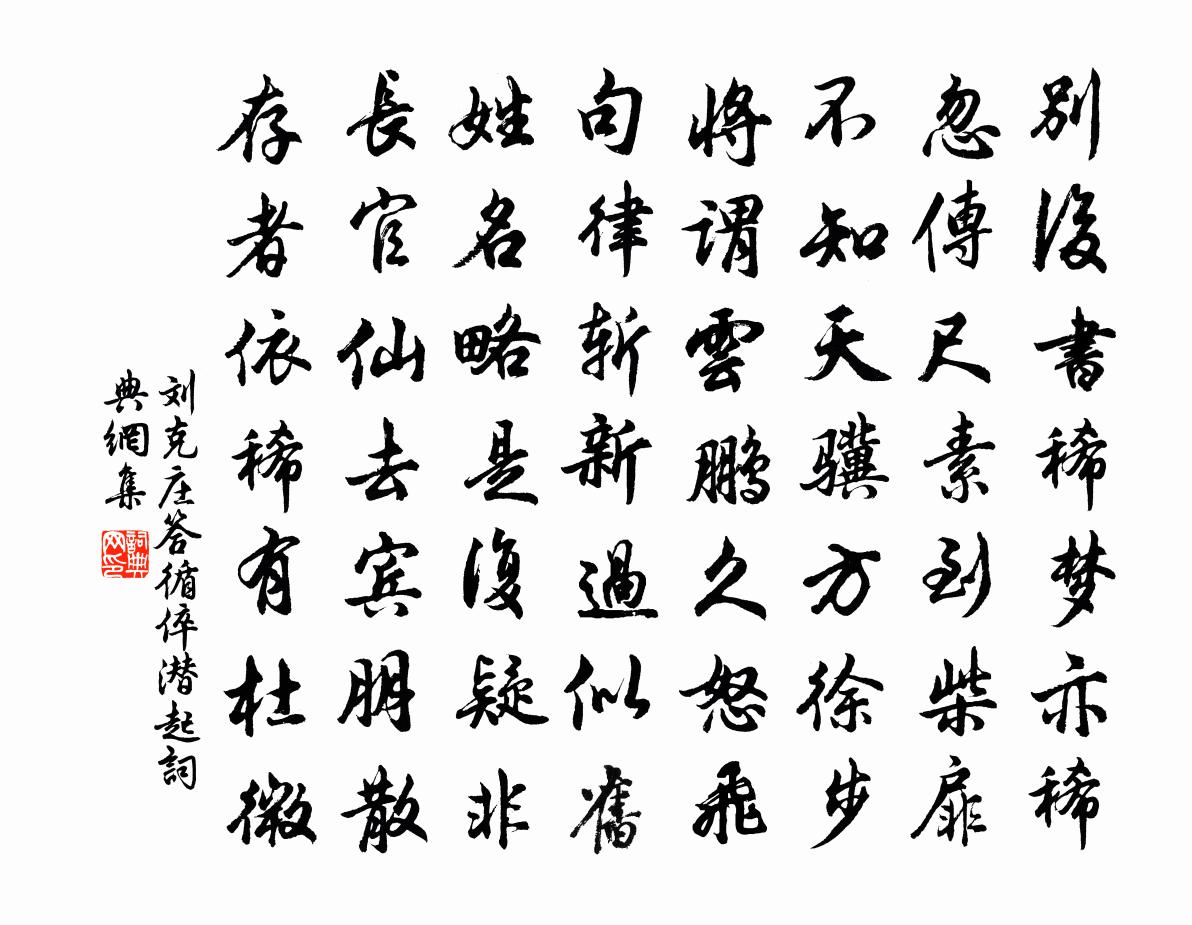 別後書稀梦亦稀
忽傳尺素到柴扉
不知天骥方徐步
將謂雲鵬久怒飛
句律斩新過似舊
姓名略是復疑非
長官仙去宾朋散
存者依稀有杜微
刘克庄答循倅潜起詞
典網集
詞典
网印